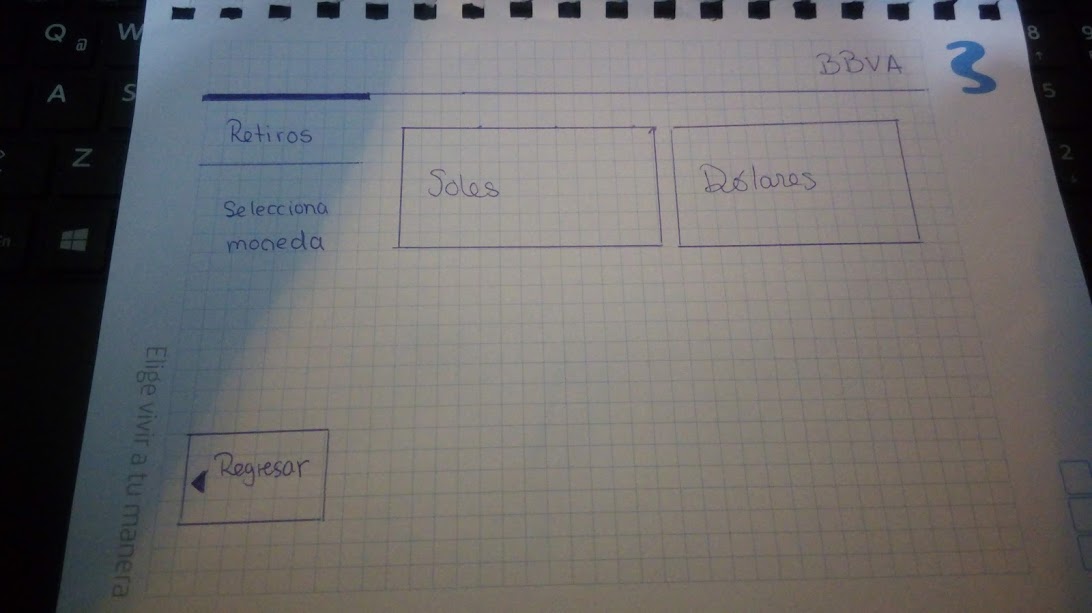 BBVA
3
Retiros
Selecciona
moneda
Soles
Dólares
Regresar
Elige vivir a tu manera
Q @
W
A
S
Z
8
9
5
2